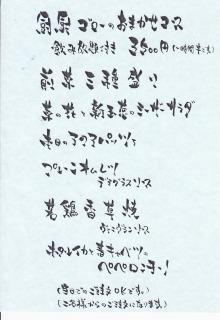 厨房ゴローのおまかせコース
飲み放題付き 3500円(2時間半です)
前菜三種盛り
菜の花と新玉葱のシーザーサラダ
本日のアクアパッツァ
プレーンオムレツ
デミグラスソース
若鶏香草焼
ヴァンブランソース
ホタルイカと春キャベツの
ペペロンチーノ
(当日のご注文OKです。)
(2名様からのご注文になります)